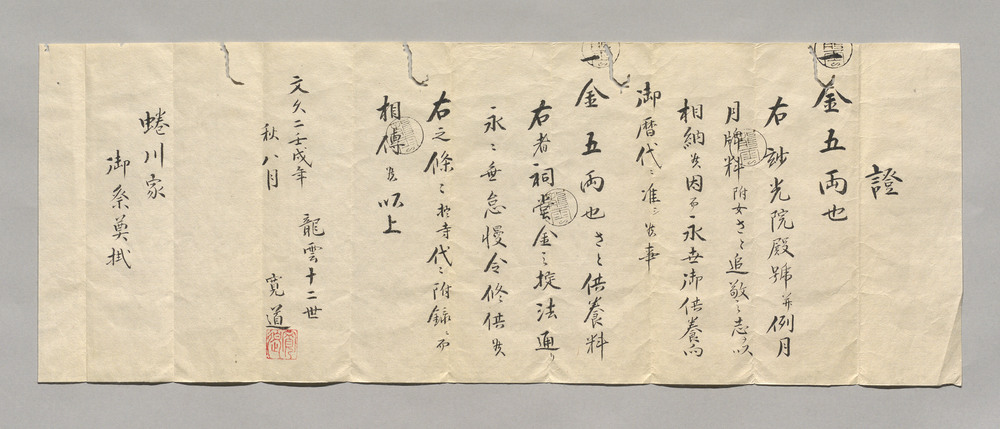 證
一金五両也
右妙光院殿號并例月
月牌料附女さと追敬之志ヲ以
相納候因而永世御供養向
御暦代々准シ候事
一金五両也さと供養料
右者祠堂金之掟法通り
永々無怠慢令修供候
右之條々於寺代々附録ニ而
相傳候以上
文久二壬戌年
秋八月
龍雲十二世
寛道
蜷川家
御祭奠掛